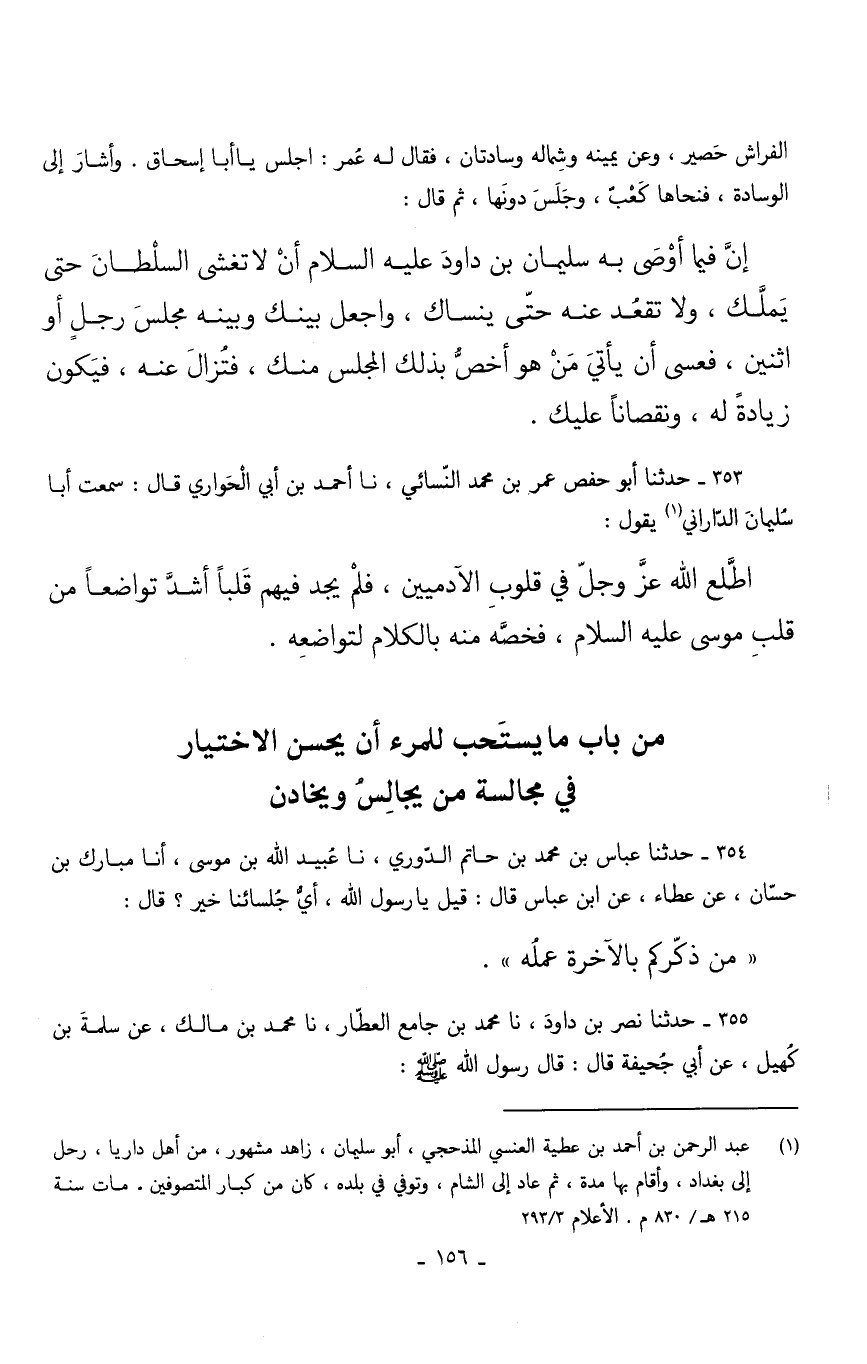 الفراش حَصير ، وعن يمينه وشِماله وسادتان ، فقال له عُمر : اجلس ياأبا إسحاق . وأشارَ إلى
الوسادة ، فنحاها كَعْبٌ ، وجَلَسَ دونَها ، ثم قال :
إنَّ فيما أوْصَى به سليمان بن داودَ عليه السلام أنْ لاتغشى السلْطانَ حتى
يَملَّك ، ولا تقعُد عنه حتّى ينساك ، واجعل بينك وبينه مجلسَ رجلٍ أو
اثنين ، فعسى أن يأتيَ مَنْ هو أخصُّ بذلك المجلس منك ، فتُزالَ عنه ، فيَكون
زيادةً له ، ونقصاناً عليك .
٣٥٣ ـ حدثنا أبو حفص عمر بن محمد النّسائي ، نا أحمد بن أبي الْحَواري قال : سمعت أبا
سُليمانَ الدّاراني(١) يقول :
اطَّلع الله عزَّ وجلّ في قلوبِ الآدميين ، فلمْ يجد فيهم قَلباً أشدَّ تواضعاً من
قلبِ موسى عليه السلام ، فخصَّه منه بالكلام لتواضعِه .
من باب مايستَحب للمرء أن يحسن الاختيار
في مجالسة من يجالِسُ ويخادن
٣٥٤ ـ حدثنا عباس بن محمد بن حاتم الدّوري ، نا عُبيد الله بن موسى ، أنا مبارك بن
حسّان ، عن عطاء ، عن ابن عباس قال : قيل يارسول الله ، أيُّ جُلسائنا خير ؟ قال :
« من ذكّركم بالآخرة عملُه » .
٣٥٥ ـ حدثنا نصر بن داودَ ، نا محمد بن جامع العطّار ، نا محمد بن مالك ، عن سلمةَ بن
كُهيل ، عن أبي جُحيفة قال : قال رسول الله ﷺ :
(١) عبد الرحمن بن أحمد بن عطية العنسي المذحجي ، أبو سليمان ، زاهد مشهور ، من أهل داريا ، رحل
إلى بغداد ، وأقام بها مدة ، ثم عاد إلى الشام ، وتوفي في بلده ، كان من كبار المتصوفين . مات سنة
٢١٥ هـ / ٨٣٠ م . الأعلام ٢٩٣/٣
ـ ١٥٦ ـ